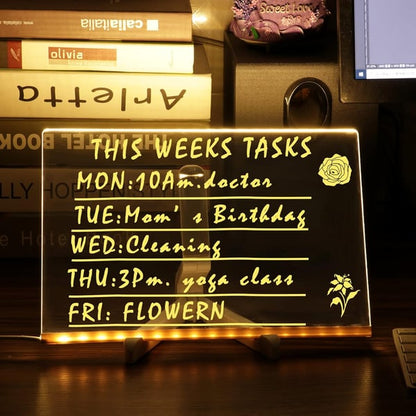 callaitalia
olivia
Arletta
THE HOTEL BOOK
LLY HOPPEN
The Hote
Sweet Love
THIS WEEKS TASKS
MON:10Am.doctor
TUE:Mom's Birthdag
WED:Cleaning
THU:3Pm. yoga class
FRI: FLOWERN